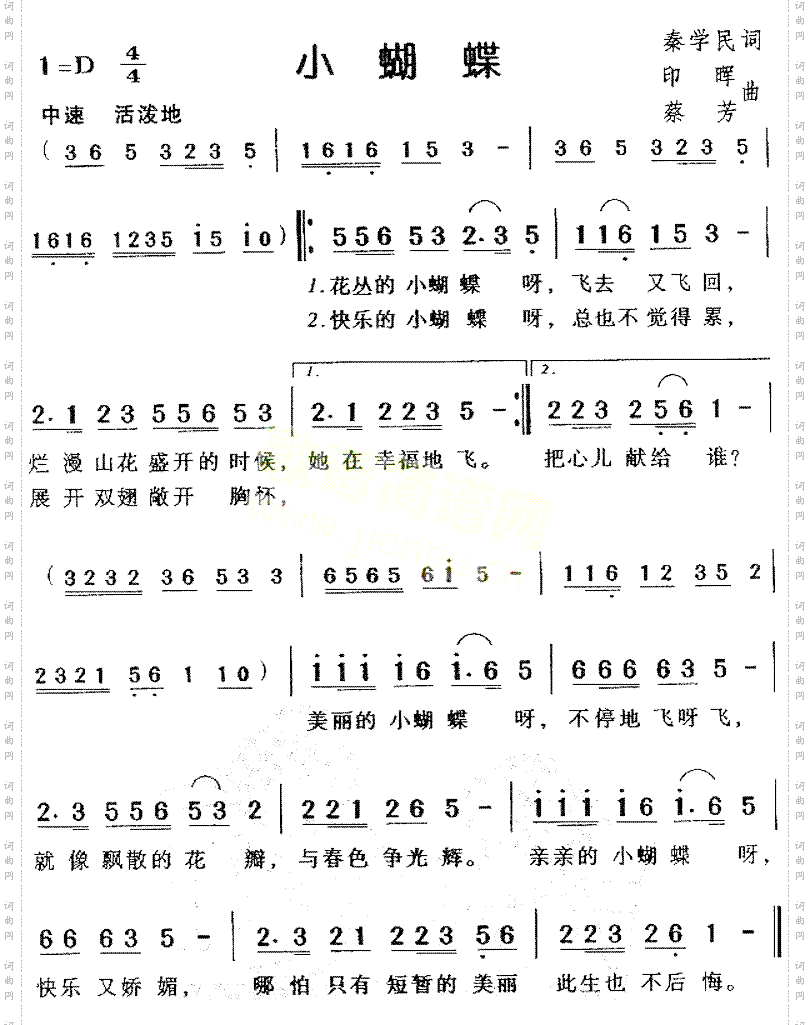 小 蝴 蝶
1=D 4/4
秦学民 词
印 晖
蔡 芳 曲
中速 活泼地
( 3 6 5 3 2 3 5 | 1 6 1 6 1 5 3 - | 3 6 5 3 2 3 5 |
1 6 1 6 1 2 3 5 1 5 1 0 ) 5 5 6 5 3 2. 3 5 | 1 1 6 1 5 3 - |
1.花丛的 小蝴 蝶 呀, 飞去 又飞 回,
2.快乐的 小蝴 蝶 呀, 总也不 觉得 累,
1. 2.
2. 1 2 3 5 5 6 5 3 | 2. 1 2 2 3 5 - 2 2 3 2 5 6 1 - |
烂 漫 山花 盛开的 时候, 她 在 幸福地 飞。 把心儿 献给 谁?
展 开 双翅 敞开 胸怀,
( 3 2 3 2 3 6 5 3 3 | 6 5 6 5 6 1 5 - | 1 1 6 1 2 3 5 2 |
2 3 2 1 5 6 1 1 0 ) | 1 1 1 1 6 1. 6 5 | 6 6 6 6 3 5 - |
美丽的 小蝴 蝶 呀, 不停地 飞呀 飞,
2. 3 5 5 6 5 3 2 | 2 2 1 2 6 5 - | 1 1 1 1 6 1. 6 5 |
就 像 飘散的 花 瓣, 与春色 争光 辉。 亲亲的 小蝴 蝶 呀,
6 6 6 3 5 - | 2. 3 2 1 2 2 3 5 6 | 2 2 3 2 6 1 - ‖
快乐 又娇 媚, 哪 怕 只有 短暂的 美丽 此生也 不后 悔。
词曲网